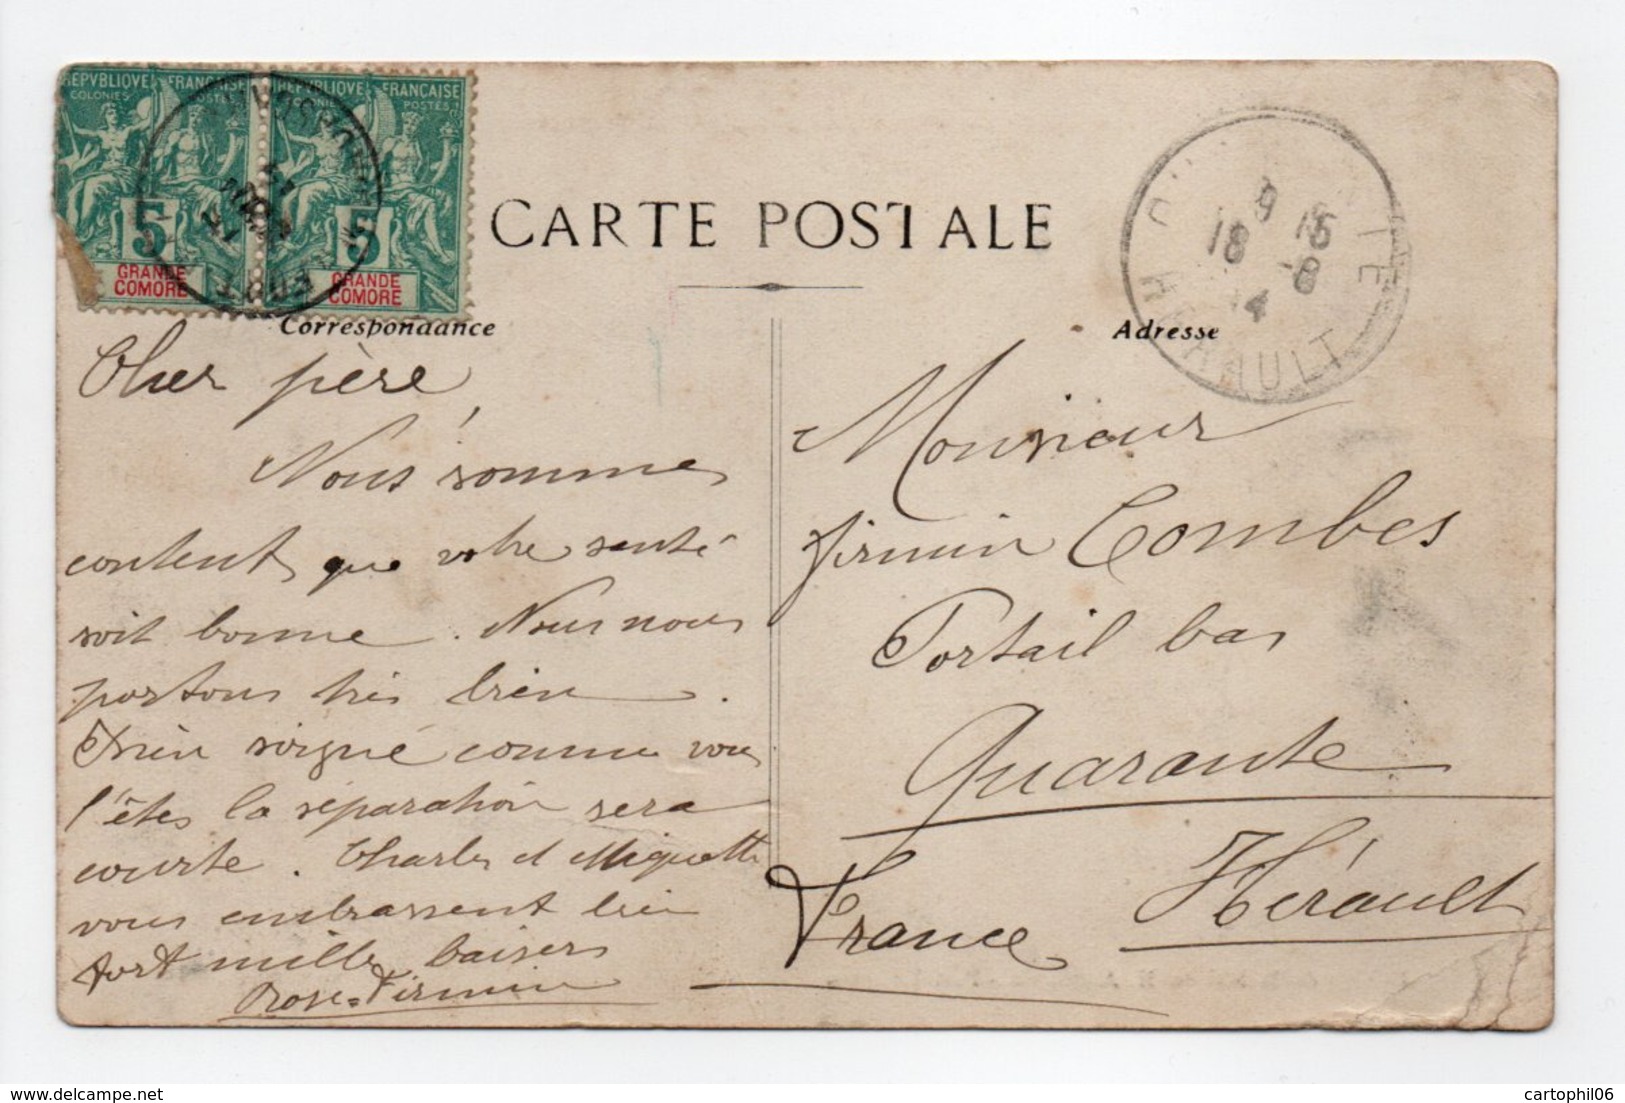 REPVBLIQVE FRANÇAISE
COLONIES POSTES
5
GRANDE
COMORE
REPVBLIQVE FRANÇAISE
COLONIES POSTES
5
GRANDE
COMORE
CARTE POSTALE
Correspondance
Cher père,
Nous somme
content que votre santé
soit bonne. Nous nous
portons très bien.
Bien soigné comme vous
l'êtes la séparation sera
courte. Charles et Miquette
vous embrassent bien
fort mille baisers
Rose=Firmin
Adresse
9 15
18 -8
14
HERAULT
Monsieur
firmin Combes
Portail bas
Quarante
Hérault
France
cartophil06